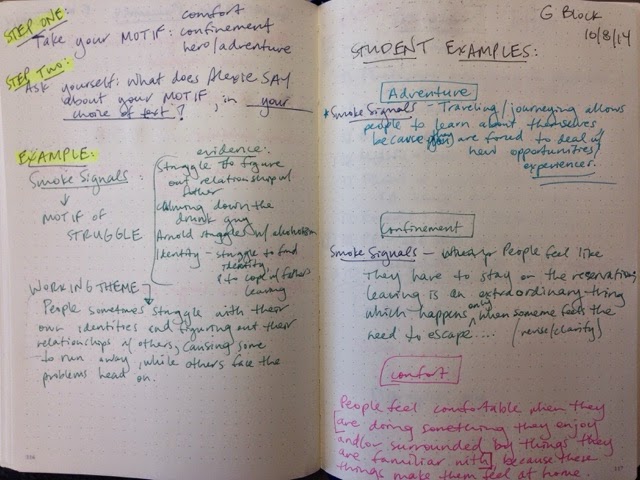 STEP ONE:
comfort
Take your MOTIF: confinement
hero/adventure
STEP TWO:
Ask yourself: What does Alexie SAY
about your MOTIF, in your
choice of text?
EXAMPLE:
Smoke Signals:
MOTIF OF
STRUGGLE
evidence:
Struggle to figure
out relationship w/
father
Calming down the
drunk guy
Arnold struggles w/ alcoholism
Identity - struggle to find
identity
& to cope w/ father's
leaving
WORKING THEME
People sometimes struggle with their
own identities and figuring out their
relationships w/ others, causing some
to run away, while others face the
problems head on.
G Block
10/8/14
STUDENT EXAMPLES:
Adventure
*Smoke Signals - Traveling/journeying allows
people to learn about themselves
because are forced to deal w/
new opportunities/
experiences.
Confinement
Smoke Signals - People feel like
they have to stay on the reservation,
leaving is an extraordinary thing
which happens only when someone feels the
need to escape.... (revise/clarify)
Comfort
People feel comfortable when they
[are doing something they enjoy
and/or surrounded by things they
are familiar with], because these
things make them feel at home.